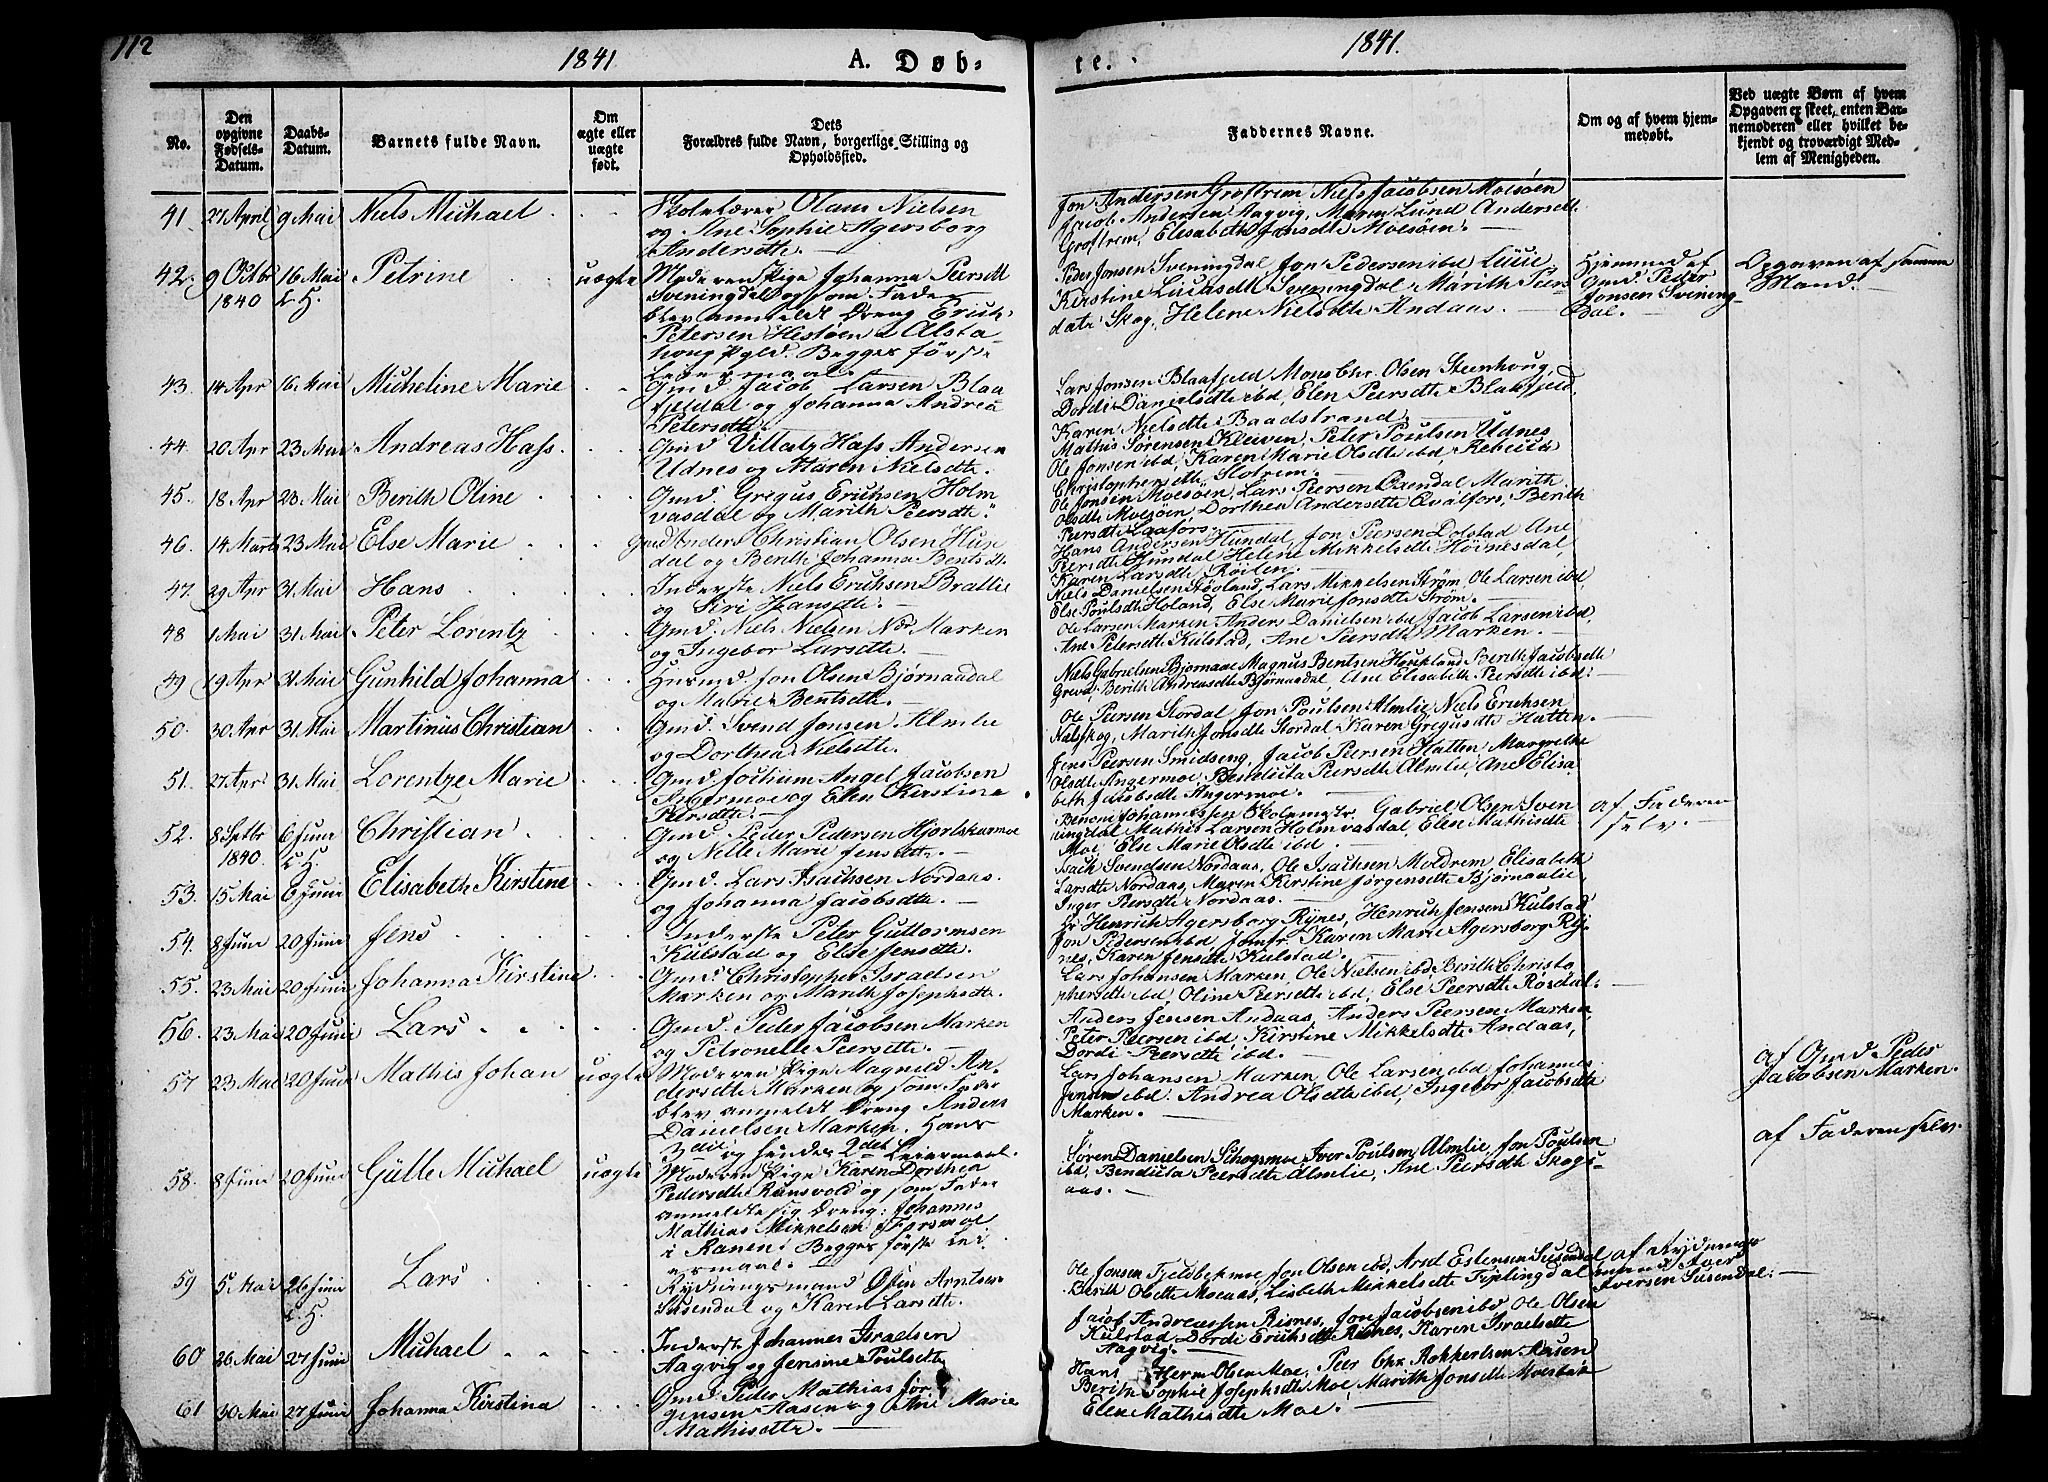 112
1841
A. Døb-
te.
1841.
No.
Den opgivne Fødsels-Datum.
Daabs-Datum.
Barnets fulde Navn.
Om ægte eller uægte født.
Dets Forældres fulde Navn, borgerlige Stilling og Opholdssted.
Faddernes Navne.
Om og af hvem hjemmedøbt.
Ved uægte Børn af hvem Opgaven er skeet, enten Barnemoderen eller hvilket bekjendt og troværdigt Medlem af Menigheden.
41. 27 April 9 Mai Niels Michael
Skolelærer Olaus Nielsen
og Ane Sophie Agersborg
Andersdtr.
Jon Andersen Groftrem Niels Jacobsen Moesøen
Jacob Andersen Aagvig, Maren Lund Andersdt.
Groftrem, Elisabeth Jonsdtr Moesøen.
42. 9 Octbr 1840 16 Mai L. H. Petrine uægte
Moderen Pige Johanna Peersdtr
Sveningdal og som Fader
blev anmeldt Dreng Erich
Petersen Hestøen i Alsta
houg Pgld. Begges første
Leiermaal.
Peder Jonsen Sveningdal Jon Pedersen ibd Lucie
Kirstine Lucasdt Sveningdal, Marith Peers
datr Skog, Helene Nielsdtr Andaas.
Hjemmed. af
Gmd. Peder
Jonsen Svening-
dal.
Opgaven af samme
Mand.
43. 14 Apr 16 Mai Micheline Marie
Gmd. Jacob Larsen Blaa
fjeldal og Johanna Andrea
Petersdtr.
Lars Jonsen Blaafjeld Mons Chr. Olsen Steenhoug,
Dordi Danielsdtr ibd, Elen Peersdtr Blaafjeld,
Karen Nielsdtr Baadstrand.
44. 20 Apr 23 Mai Andreas Hass.
Gmd. Villats Hass Andersen
Udnes og Maren Nielsdtr.
Mathis Sørensen Kleiven, Peter Poulsen Udnes
Ole Jonsen ibd, Karen Marie Olsdtr ibd, Rebecca
Christophersdtr Slotrem.
45. 18 Apr 23 Mai Berith Oline
Gmd. Gregus Erichsen Holm
vasdal og Marith Peersdtr.
Ole Jonsen Moesøen, Lars Peersen Marith
Olsdtr Moesøen Dorthea Andersdtr Qvalfors, Berith
Peersdtr Laafors.
46. 14 Marts 23 Mai Else Marie
Gmd Anders Christian Olsen Hun
dal og Berith Johanna Bentsdt.
Hans Andersen Hundal, Jon Peersen Dolstad Ane
Peersdtr Hundal Helene Mikkelsdtr Høinesdal,
Karen Larsdtr Røilen.
47. 29 Apr 31 Mai Hans
Inderste Niels Erichsen Brattlie
og Siri Hansdtr.
Niels Danielsen Høgland, Lars Mikkelsen Strøm, Ole Larsen ibd,
Else Poulsdtr Holand, Else Marie Jonsdtr Strøm.
48 1 Mai 31 Mai Peter Lorentz
Gmd. Niels Nielsen Ndr Marken
og Ingebor Larsdtr.
Ole Larsen Marken Anders Danielsen ibd, Jacob Larsen ibd
Ane Petersdtr Kulstad, Ane Peersdtr Marken.
49 19 Apr 31 Mai Gunhild Johanna
Husmd. Jon Olsen Bjørnaadal
og Marie Bentsdtr.
Niels Gabrielsen Bjørnaae Magnus Bentsen Houkland Berith Jacobsdtr
Berith Andreasdtr Bjørnaadal, Ane Elisabeth Peersdtr ibd.
50. 30 Apr 31 Mai Martinus Christian
Gmd. Svend Jonsen Almlie
og Dorthea Nielsdtr.
Ole Peersen Stordal Jon Poulsen Almlie Niels Erichsen
Marith Jonsdtr Stordal Karen Gregusdtr Hatten.
51. 27 Apr 31 Mai Lorentze Marie
Gmd Jochum Angel Jacobsen
Angermoe og Elen Kirstine
Peersdtr.
Jens Peersen Smidseng, Jacob Peersen Hatten, Margrethe
Olsdtr Angermoe, Bendicta Peersdtr Almlie, Ane Elisa
beth Jacobsdtr Angermoe.
52. 8 Septbr 1840. 6 Juni L. H. Christian
Gmd. Peder Pedersen Hjortskarmoe
og Nelle Marie Jensdtr.
Benoni Johannessen Skolemstr. Gabriel Olsen Sven
ningdal Mathis Larsen Holmvasdal, Elen Mathisdtr
Moe, Else Marie Olsdtr ibd.
af Faderen
selv.
53. 15 Mai 6 Juni Elisabeth Kirstine
Gmd. Lars Isachsen Nordaas.
og Johanna Jacobsdtr.
Isach Svendsen Nordaas, Ole Isachsen Moldrem Elisabeth
Larsdtr Nordaas, Maren Kirstine Jørgensdtr Bjørnaalie,
Inger Peersdtr Nordaas.
54. 8 Juni 20 Juni Jens
Inderste Peter Guttormsen
Kulstad og Else Jensdtr.
Hr Henrich Agersborg Rynes, Henrich Jensen Kulstad
Jon Pedersen ibd, Jomfr. Karen Marie Agersborg Ry-
nes, Karen Jensdtr Kulstad.
55. 23 Mai 20 Juni Johanna Kirstine
Gmd. Christopher Israelsen
Marken og Marith Josephsdtr.
Lars Johansen Marken, Ole Nielsen ibd Berith Christo
phersdtr ibd, Oline Peersdtr ibd, Else Peersdtr Røsdal.
56. 23 Mai 20 Juni Lars
Gmd. Peder Jacobsen Marken
og Petronelle Peersdtr.
Anders Jensen Andaas, Anders Peersen Marken,
Peter Peersen ibd, Kirstine Mikkelsdtr Andaas,
Dordi Peersdtr ibd.
57 23 Mai 20 Juni Mathis Johan uægte
Moderen Pige Magnild An-
dersdtr Marken og som Fader
blev anmeldt Dreng Anders
Danielsen Marken. Hans
3die og hendes 2det Leiermaal.
Lars Johansen Marken, Ole Larsen ibd Johannes
Jensen ibd. Andrea Olsdtr ibd, Ingebor Jacobsdtr
Marken.
af Gmd Peder
Jacobsen Marken.
58. 8 Juni 20 Juni Gulle Michael uægte
Moderen Pige Karen Dorthea
Pedersdtr Ransvold og som Fader
anmeldte sig Dreng: Johannes
Mathias Mikkelsen Forsmoe
i Ranen. Begges første Lei
ermaal.
Søren Danielsen Skogsmoe Iver Poulsen Almlie, Jon Poulsen
ibd, Bendicta Peersdtr Almlie, Ane Peersdtr Skogs-
aas.
af Faderen selv.
59 5 Mai 26 Juni L. H. Lars
Rydningsmand Østen Arntsen
Susendal og Karen Larsdtr.
Ole Jonsen Fjeldbekmoe, Jon Olsen ibd, Arnt Estensen Susendal
Berith Olsdtr Moeaas, Lisbeth Mikkelsdtr Fiplingdal
af Rydnings
mand Iver
Iversen Susendal.
60 26 Mai 27 Juni Michael
Inderste Johannes Israelsen
Aagvig og Jensine Poulsdtr
Jacob Andreassen Risnes, Jon Jacobsen ibd Ole Olsen
Kulstad Dordi Erichsdtr Risnes, Karen Israelsdtr
Aagvig.
61 30 Mai 27 Juni Johanna Kirstina
Gmd. Peder Mathias Jør
gensen Aasen og Ane Marie
Mathisdtr.
Hans Herm Olsen Moe, Peer Chr. Rokkertsen Aasen
Berith Sophie Josephsdtr Moe, Marith Jonsdtr Moesbek
Elen Mathisdtr Moe.